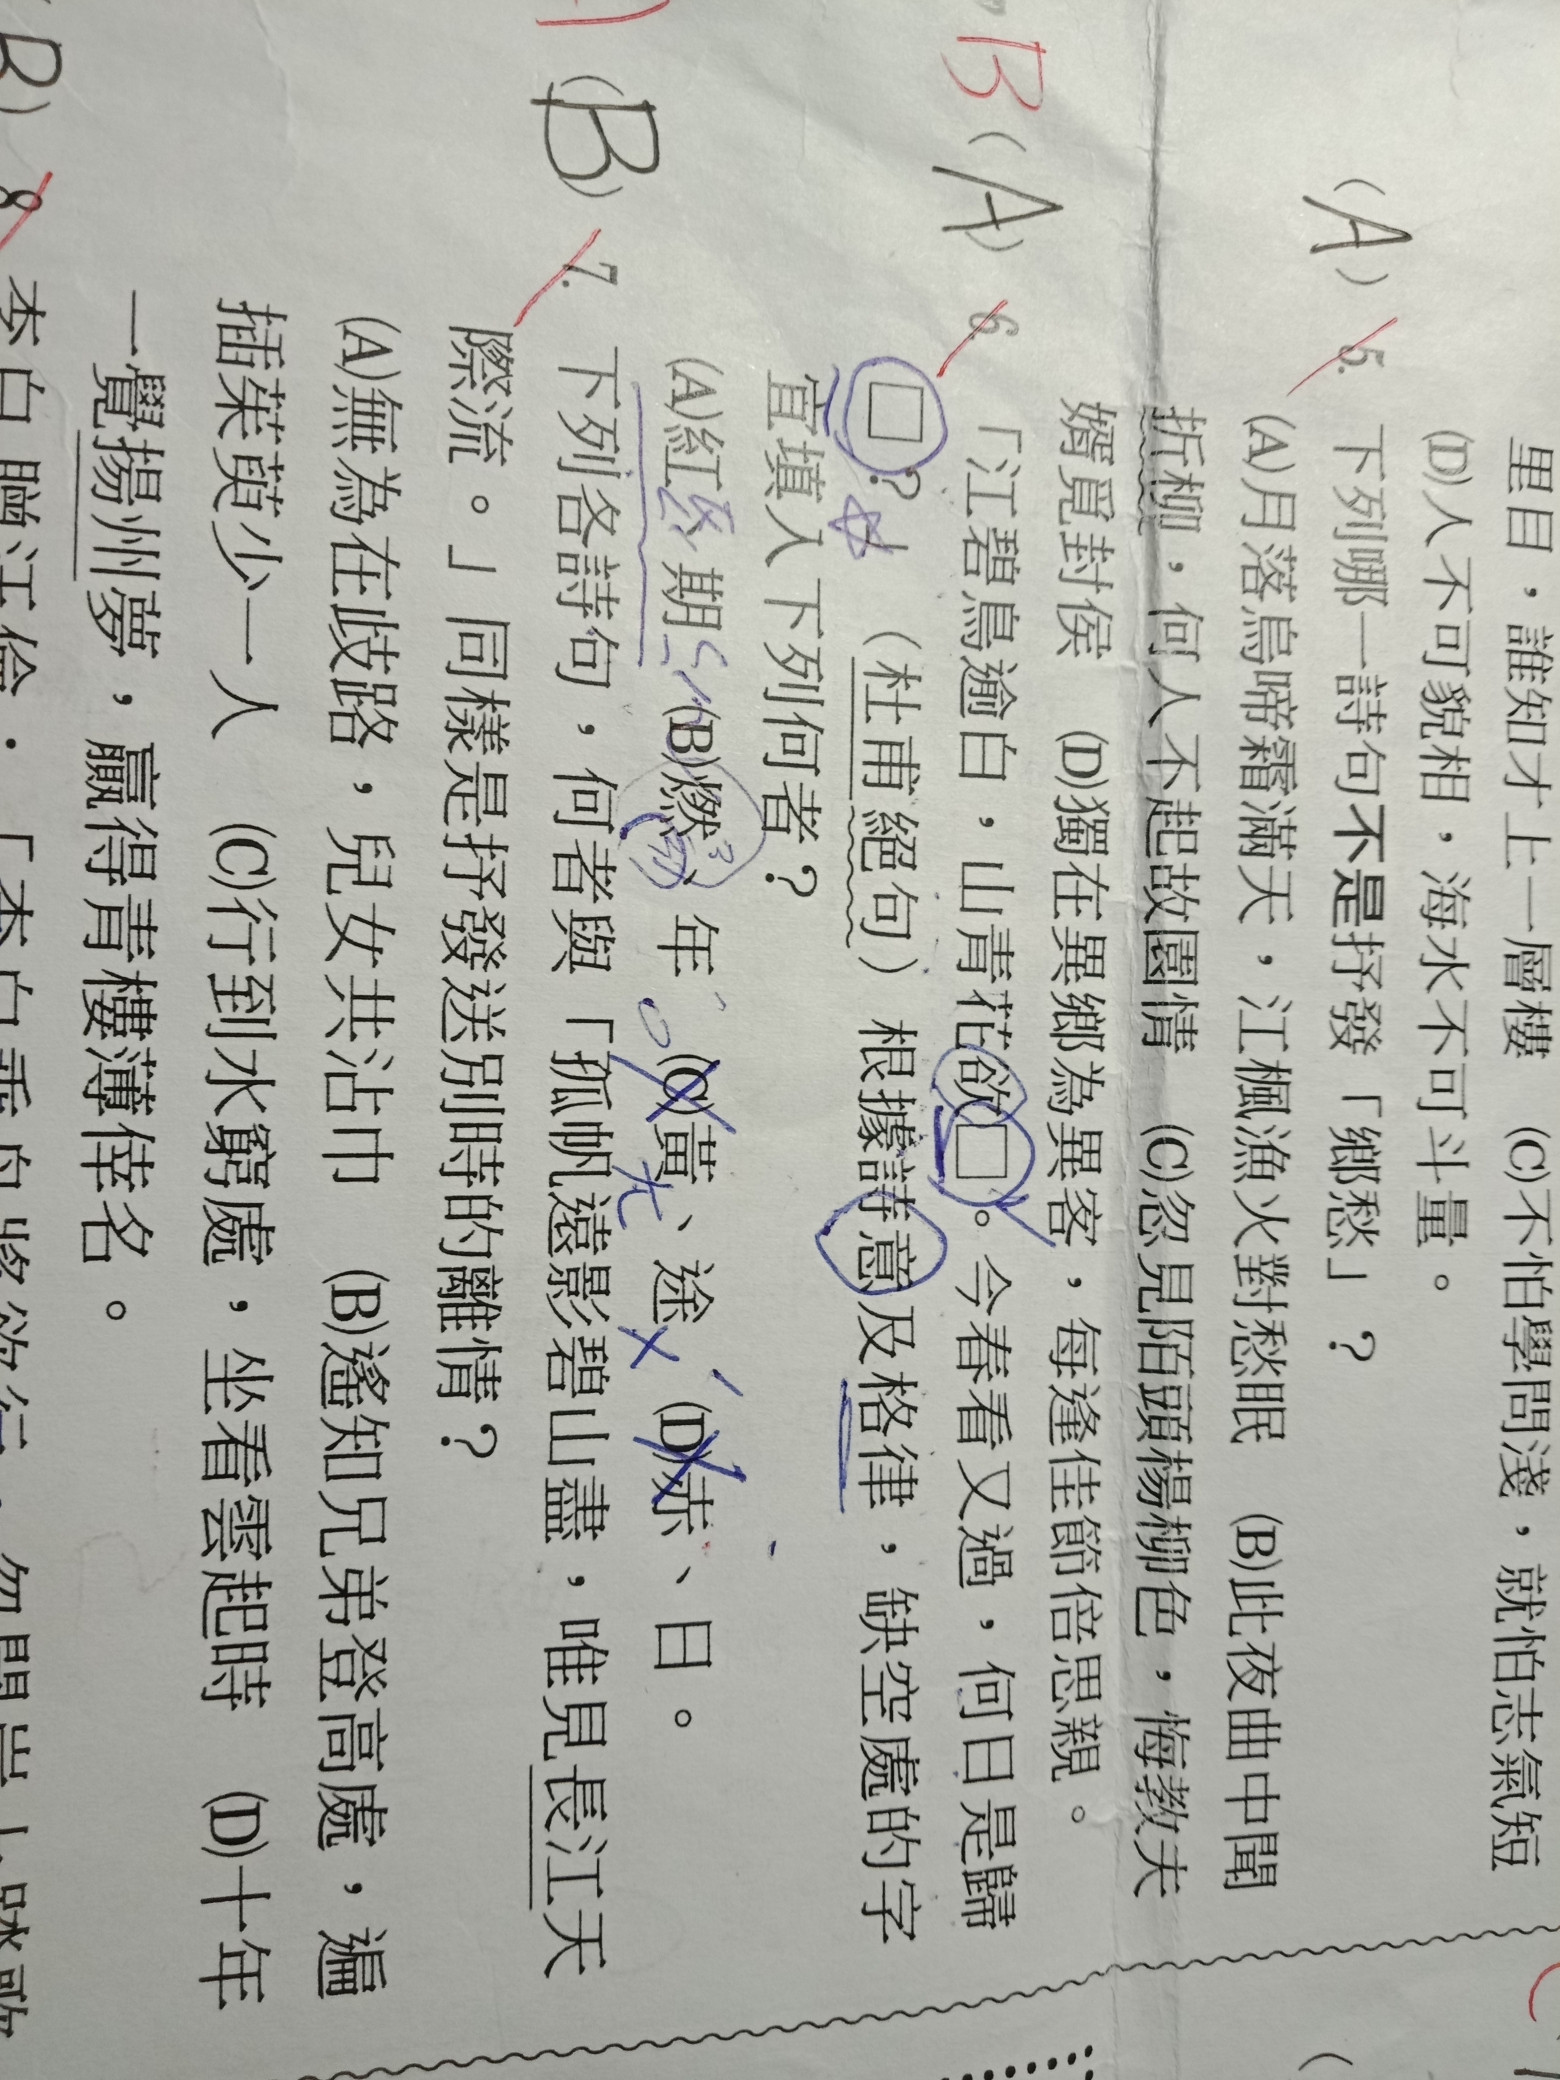 里目，誰知才上一層樓　(C)不怕學問淺，就怕志氣短
(D)人不可貌相，海水不可斗量。
(A) 5. 下列哪一詩句不是抒發「鄉愁」？
(A)月落烏啼霜滿天，江楓漁火對愁眠　(B)此夜曲中聞
折柳，何人不起故園情　(C)忽見陌頭楊柳色，悔教夫
婿覓封侯　(D)獨在異鄉為異客，每逢佳節倍思親。
B (A) 6. 「江碧鳥逾白，山青花欲□。今春看又過，何日是歸
□？」（杜甫絕句）根據詩意及格律，缺空處的字
宜填入下列何者？
(A)紅、期　(B)燃、年　(C)黃、途　(D)赤、日。
(B) 7. 下列各詩句，何者與「孤帆遠影碧山盡，唯見長江天
際流。」同樣是抒發送別時的離情？
(A)無為在歧路，兒女共沾巾　(B)遙知兄弟登高處，遍
插茱萸少一人　(C)行到水窮處，坐看雲起時　(D)十年
一覺揚州夢，贏得青樓薄倖名。
B) 8. 李白贈汪倫：「李白乘舟將欲行，忽聞岸上踏歌